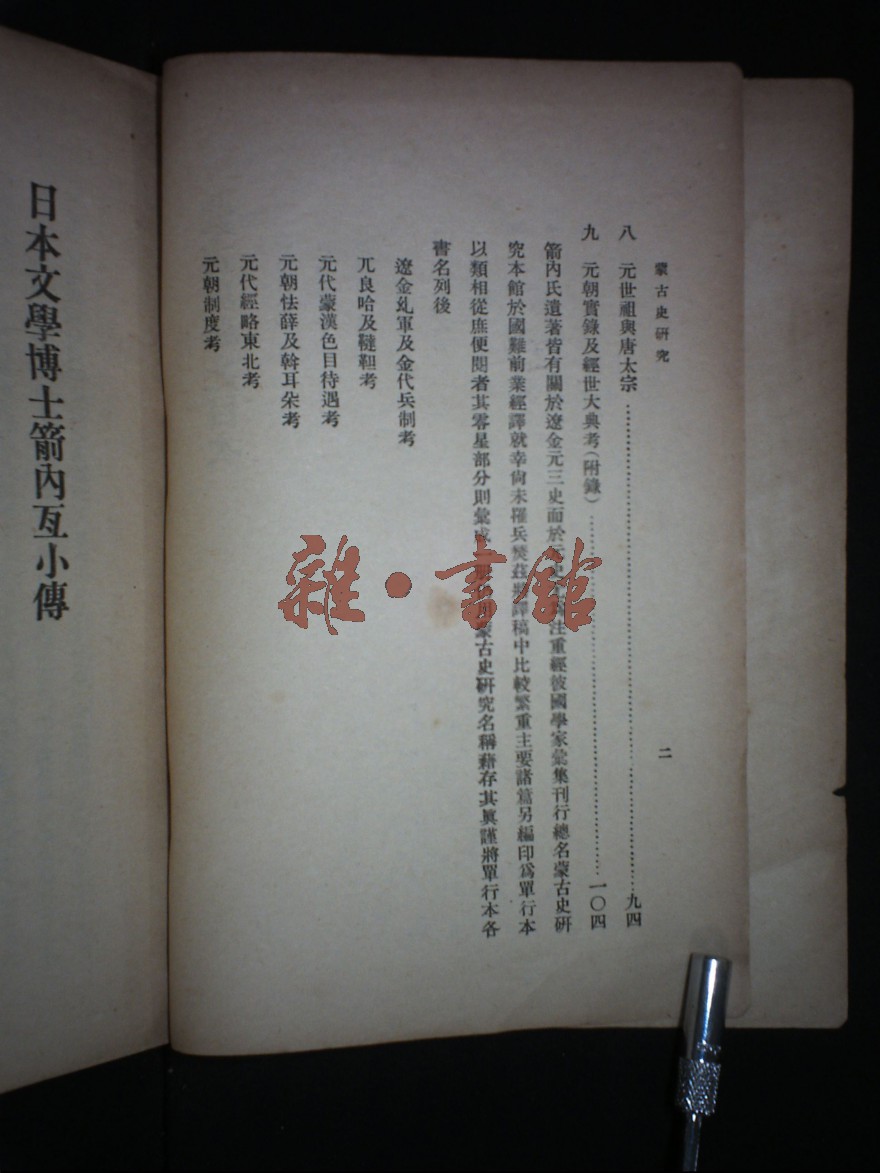 蒙古史研究
二
八 元世祖與唐太宗……九四
九 元朝實錄及經世大典考(附錄)……一〇四
箭內氏遺著皆有關於遼金元三史而於元史注重經彼國學家彙集刊行總名蒙古史研
究本館於國難前業經譯就幸尙未罹兵燹茲將譯稿中比較繁重主要諸篇另編印爲單行本
以類相從庶便閱者其零星部分則彙成蒙古史研究名稱藉存其眞謹將單行本各
書名列後
遼金乣軍及金代兵制考
兀良哈及韃靼考
元代蒙漢色目待遇考
元朝怯薛及斡耳朵考
元代經略東北考
元朝制度考
日本文學博士箭內亙小傳
雜·書館